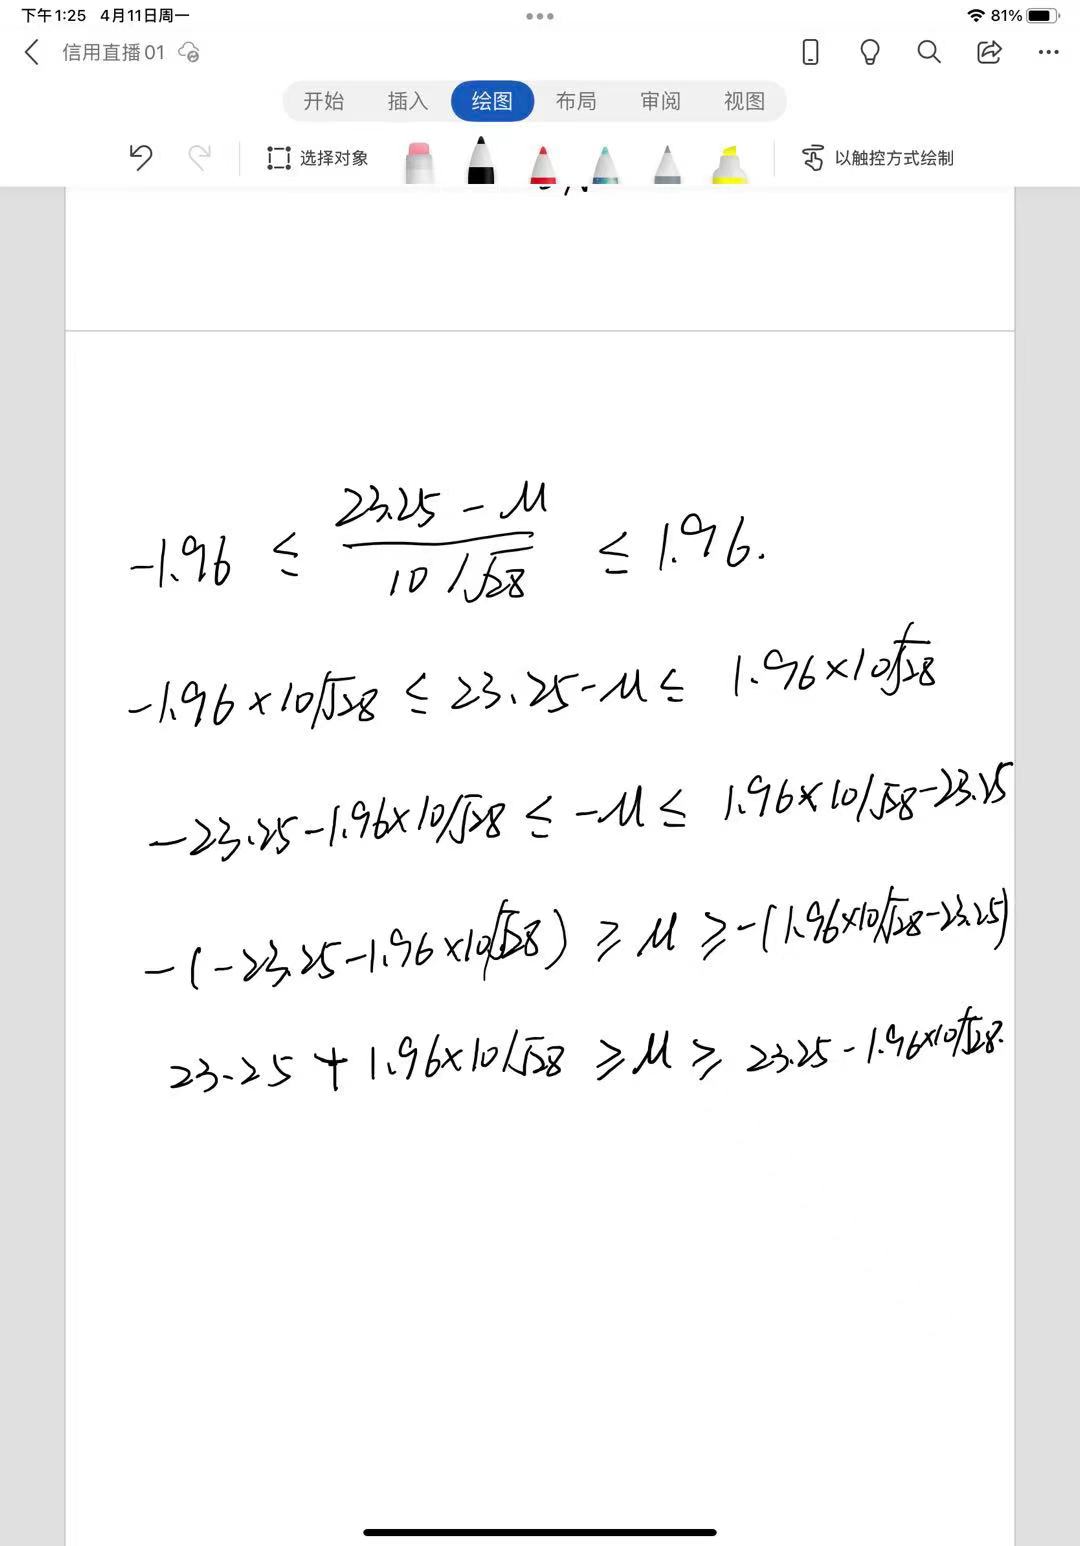 下午1:25 4月11日周一 81%
信用直播01
开始 插入 绘图 布局 审阅 视图
选择对象 以触控方式绘制
-1.96 ≤ (23.25 - μ)/(10/√28) ≤ 1.96.
-1.96×10/√28 ≤ 23.25-μ ≤ 1.96×10/√28
-23.25-1.96×10/√28 ≤ -μ ≤ 1.96×10/√28-23.25
-(-23.25-1.96×10/√28) ≥ μ ≥ -(1.96×10/√28-23.25)
23.25 + 1.96×10/√28 ≥ μ ≥ 23.25-1.96×10/√28.